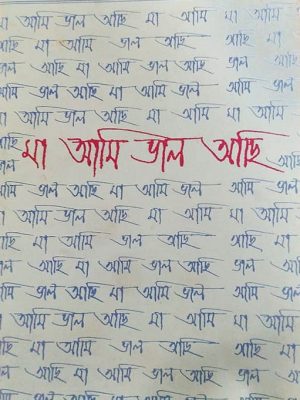 মা আমি ভাল আছি মা আমি মা আমি
আছি মা আমি ভাল আছি আছি মা
ভাল আছি মা আমি ভাল আছি ভাল আছি
আমি ভাল আছি মা আমি ভাল আমি ভাল
মা আমি ভাল আছি মা আমি মা আমি
আছি
মা আমি ভাল আছি
ভাল
আমি ভাল আছি মা আমি ভাল আমি ভাল
মা আমি ভাল আছি মা আমি মা আমি
আছি মা আমি ভাল আছি আছি মা
ভাল আছি মা আমি ভাল আছি ভাল আছি
আমি ভাল আছি মা আমি ভাল আমি ভাল
মা আমি ভাল আছি মা আমি মা আমি
আছি মা আমি ভাল আছি আছি মা
ভাল আছি মা আমি ভাল আছি ভাল আছি